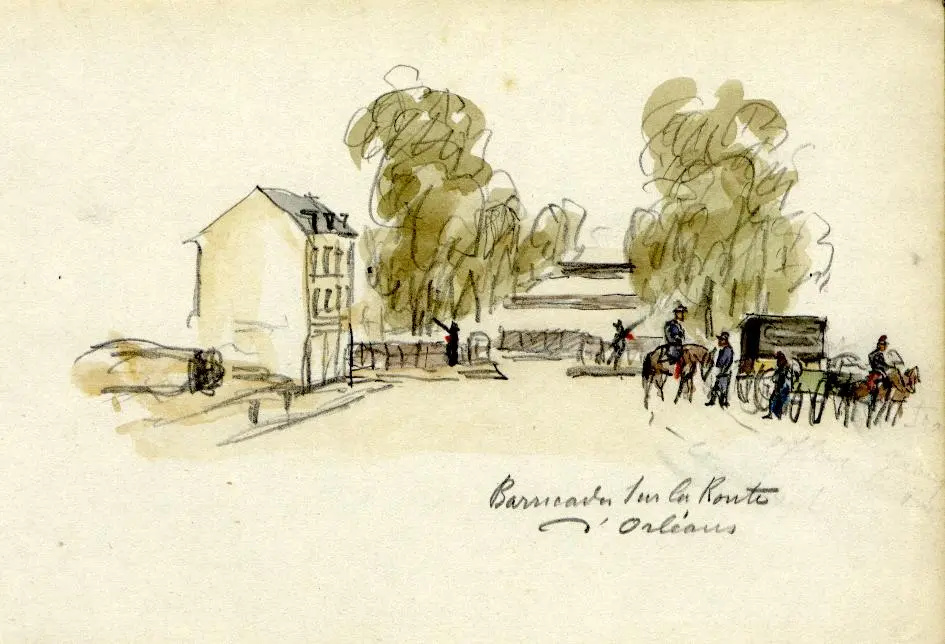 Barricades sur la Route
d'Orléans